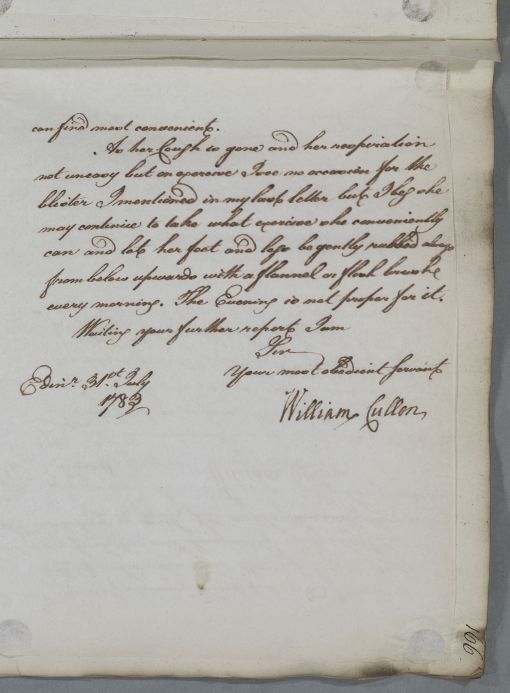 can find most convenient.
As her Cough is gone and her respiration
not uneasy but on exercise I see no occasion for the
blister I mentioned in my last letter but I beg she
may continue to take what exercise she conveniently
can and let her feet and legs be gently rubbed always
from below upwards with a flannel or flesh brush
every morning. The Evening is not proper for it.
Waiting your further report I am
Sir
Your most obedient servant
Edinr. 31st. July
1783
William Cullen
166